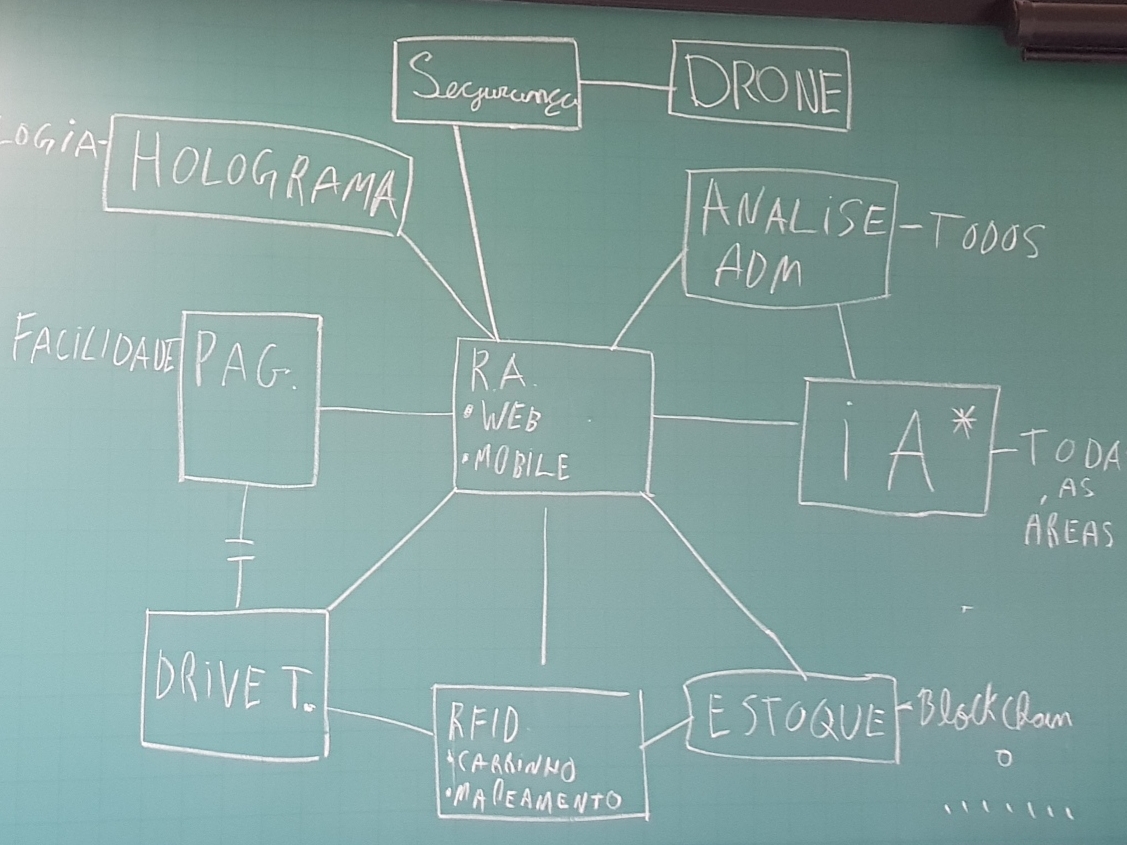 Segurança
DRONE
LOGIA-
HOLOGRAMA
ANALISE
ADM
-TODOS
FACILIDADE
PAG.
R.A.
•WEB
•MOBILE
iA*
-TODA
AS
ÁREAS
DRIVE T.
RFID
•CARRINHO
•MAPEAMENTO
ESTOQUE
-BlockChain